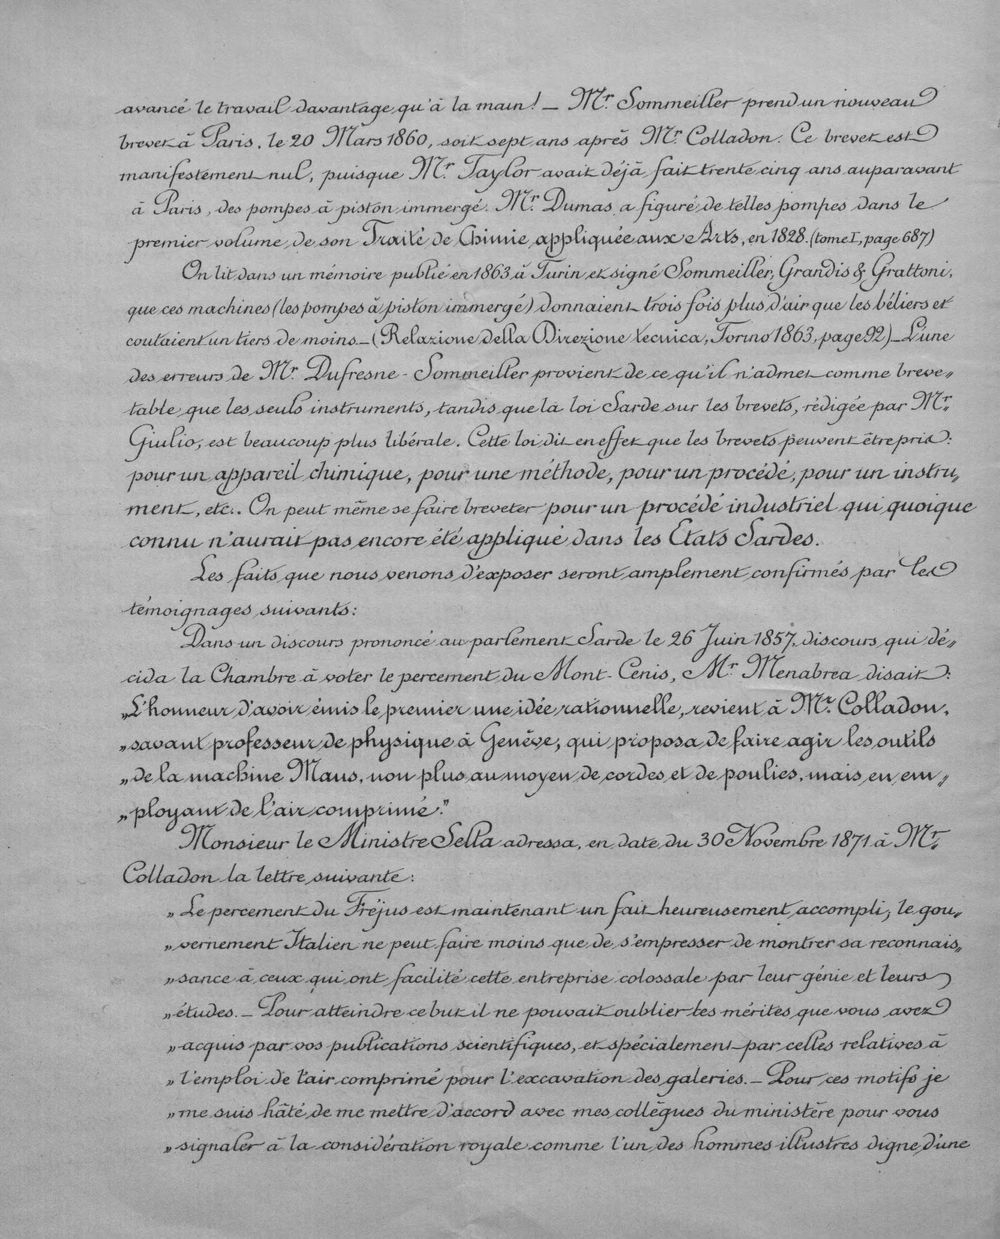 avancé le travail davantage qu'à la main! — Mr. Sommeiller prend un nouveau
brevet à Paris, le 20 Mars 1860, soit sept ans après Mr. Colladon. Ce brevet est
manifestement nul, puisque Mr. Taylor avait déjà fait trente cinq ans auparavant
à Paris, des pompes à piston immergé. Mr. Dumas a figuré de telles pompes dans le
premier volume de son Traité de Chimie appliquée aux Arts, en 1828. (tome I, page 687)
On lit dans un mémoire publié en 1863 à Turin et signé Sommeiller, Grandis & Grattoni,
que ces machines (les pompes à piston immergé) donnaient trois fois plus d'air que les béliers et
coutaient un tiers de moins — (Relazione della Direzione tecnica, Torino 1863, page 92) — L'une
des erreurs de Mr. Dufresne-Sommeiller provient de ce qu'il n'admet comme breve„
table que les seuls instruments, tandis que la loi Sarde sur les brevets, rédigée par Mr.
Giulio, est beaucoup plus libérale. Cette loi dit en effet que les brevets peuvent être pris:
pour un appareil chimique, pour une méthode, pour un procédé, pour un instru„
ment, etc.. On peut même se faire breveter pour un procédé industriel qui quoique
connu n'aurait pas encore été appliqué dans les Etats Sardes.
Les faits que nous venons d'exposer seront amplement confirmés par les
témoignages suivants:
Dans un discours prononcé au parlement Sarde le 26 Juin 1857, discours qui dé„
cida la Chambre à voter le percement du Mont-Cenis, Mr. Menabrea disait:
„L'honneur d'avoir émis le premier une idée rationnelle, revient à Mr. Colladon,
„savant professeur de physique à Genève, qui proposa de faire agir les outils
„de la machine Maus, non plus au moyen de cordes et de poulies, mais en em„
„ployant de l'air comprimé."
Monsieur le Ministre Sella adressa, en date du 30 Novembre 1871 à Mr.
Colladon la lettre suivante:
„Le percement du Fréjus est maintenant un fait heureusement accompli; le gou„
„vernement Italien ne peut faire moins que de s'empresser de montrer sa reconnais„
„sance à ceux qui ont facilité cette entreprise colossale par leur génie et leurs
„études. — Pour atteindre ce but il ne pouvait oublier les mérites que vous avez
„acquis par vos publications scientifiques, et spécialement par celles relatives à
„l'emploi de l'air comprimé pour l'excavation des galeries. — Pour ces motifs je
„me suis hâté de me mettre d'accord avec mes collègues du ministère pour vous
„signaler à la considération royale comme l'un des hommes illustres digne d'une